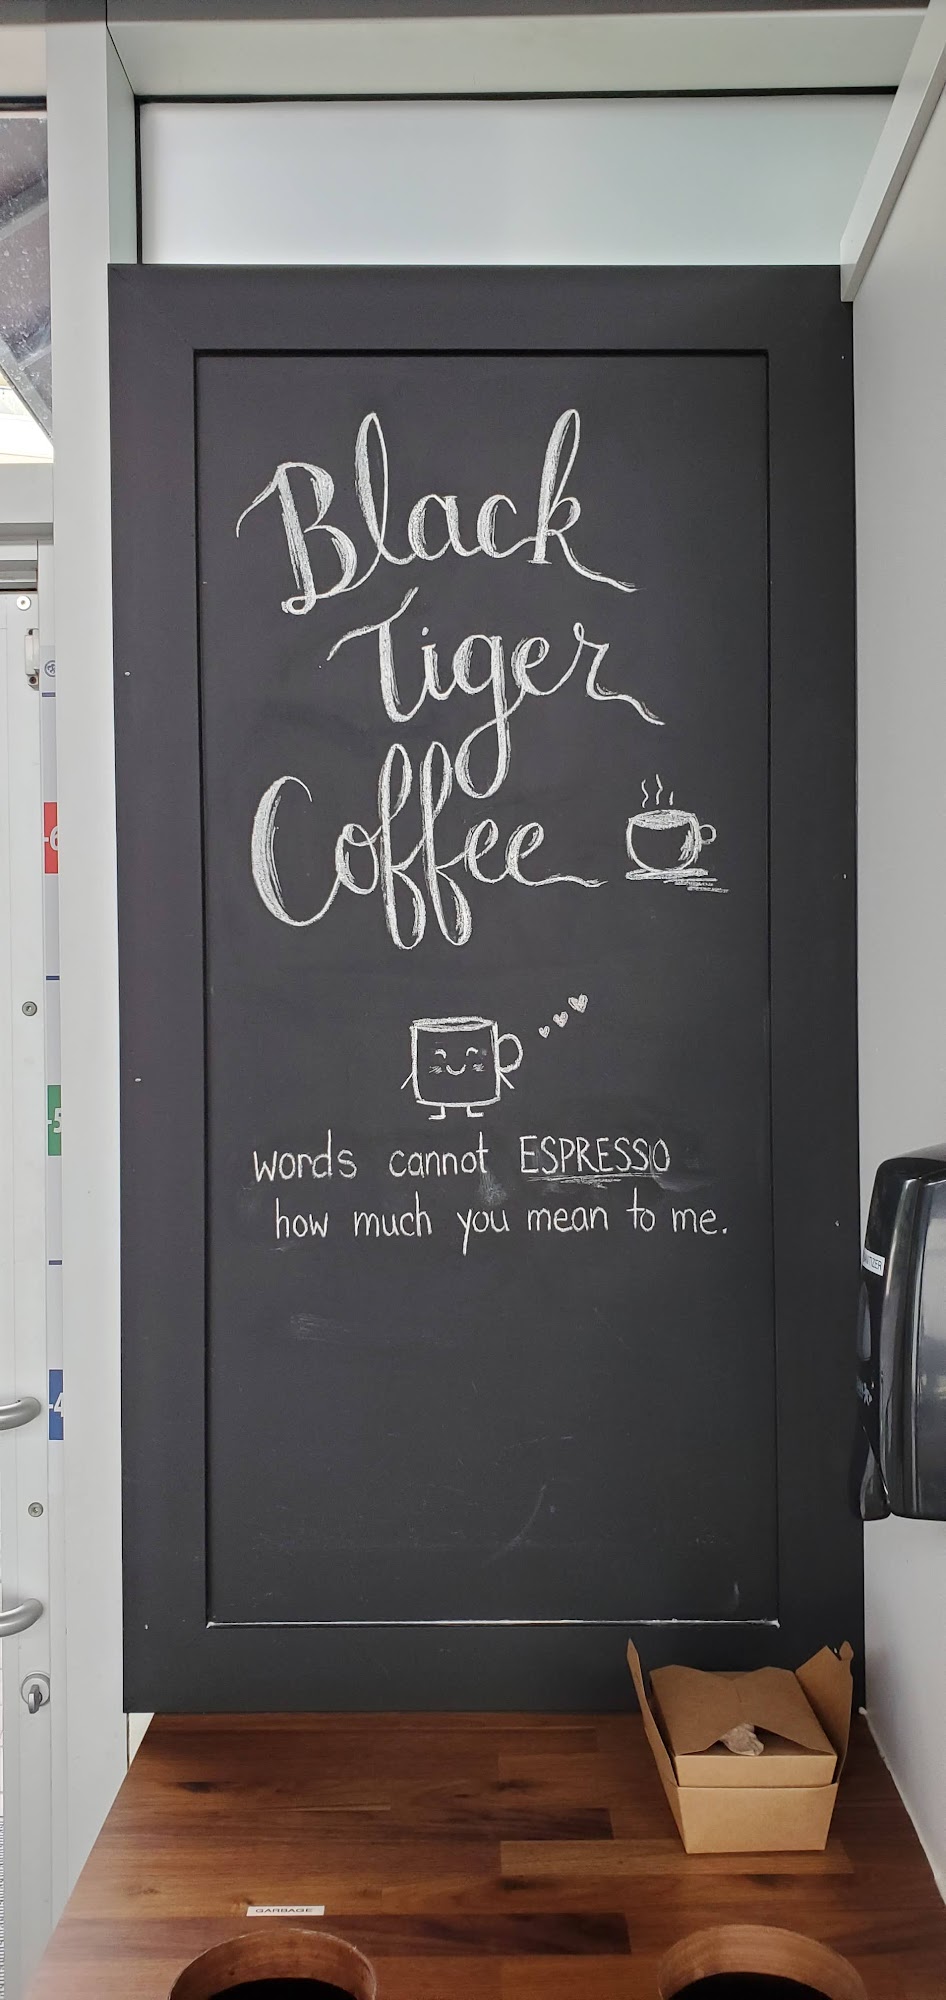 Black
Tiger
Coffee
words cannot ESPRESSO
how much you mean to me.
-6
-5
-4
GARBAGE